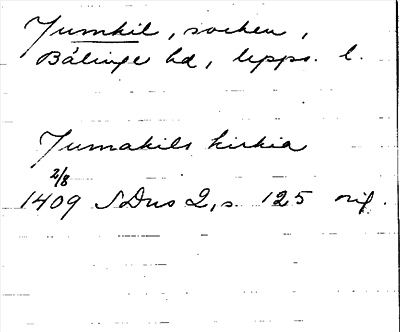 Jumkil, socken,
Bälinge hd, Upps. l.
Jumakils kirkia
2/8
1409 SDns 2, s. 125 orig.